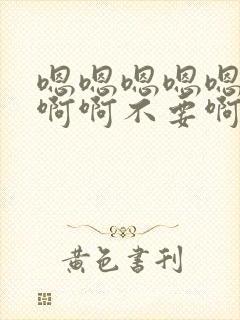 嗯嗯嗯嗯嗯
啊啊不要啊
黄色書刊